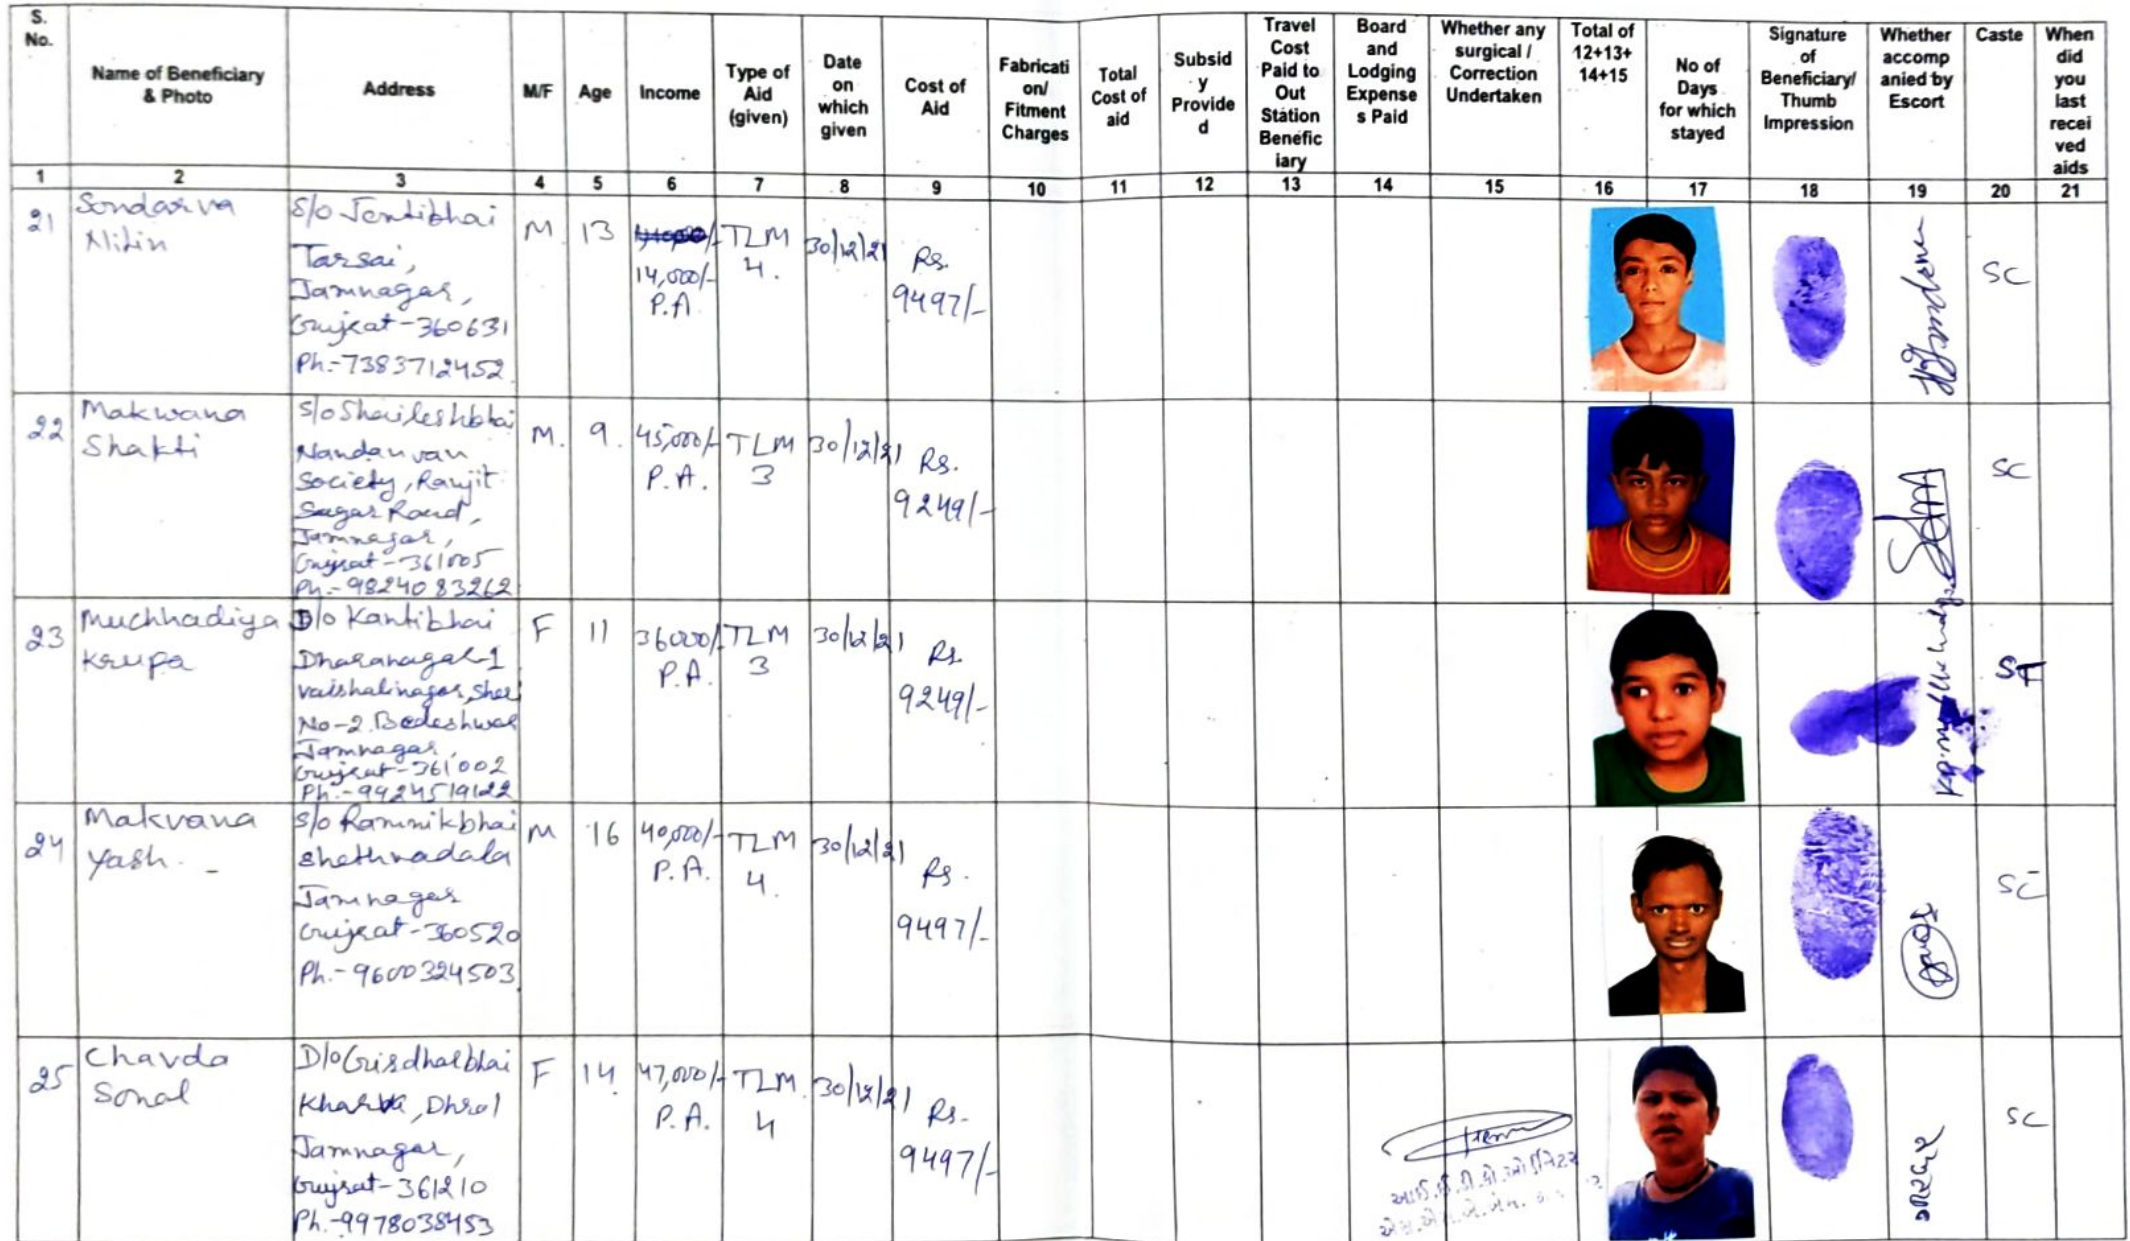 S. No.
Name of Beneficiary & Photo
Address
M/F
Age
Income
Type of Aid (given)
Date on which given
Cost of Aid
Fabricati on/ Fitment Charges
Total Cost of aid
Subsid y Provide d
Travel Cost Paid to Out Station Benefic iary
Board and Lodging Expense s Paid
Whether any surgical / Correction Undertaken
Total of 12+13+ 14+15
No of Days for which stayed
Signature of Beneficiary/ Thumb Impression
Whether accomp anied by Escort
Caste
When did you last recei ved aids
1 2 3 4 5 6 7 8 9 10 11 12 13 14 15 16 17 18 19 20 21
21
Sondarva
Nitin
S/o Jentibhai
Tarsai,
Jamnagar,
Gujrat-360631
Ph.-7383712452
M.
13
14,000/-
P.A.
TLM
4.
30/12/21
Rs.
9497/-
SC
22
Makwana
Shakti
S/o Shaileshbhai
Nandanvan
Society, Ranjit
Sagar Road,
Jamnagar,
Gujrat-361005
Ph.-9824083262
M.
9.
45,000/-
P.A.
TLM
3
30/12/21
Rs.
9249/-
SC
23
Muchhadiya
Krupa
D/o Kantibhai
Dharanagar-1
Vaishalinagar, Sheri
No-2. Bedeshwar
Jamnagar,
Gujrat-361002
Ph.-9924519122
F
11
36000/-
P.A.
TLM
3
30/12/21
Rs.
9249/-
ST
24
Makvana
Yash.
S/o Ramnikbhai
Shethvadala
Jamnagar
Gujrat-360520
Ph.-9600324503
M
16
40,000/-
P.A.
TLM
4.
30/12/21
Rs.
9497/-
SC
25
Chavda
Sonal
D/o Girdharbhai
Kharva, Dhrol
Jamnagar,
Gujrat-361210
Ph.-9978038453
F
14.
47,000/-
P.A.
TLM
4
30/12/21
Rs.
9497/-
SC